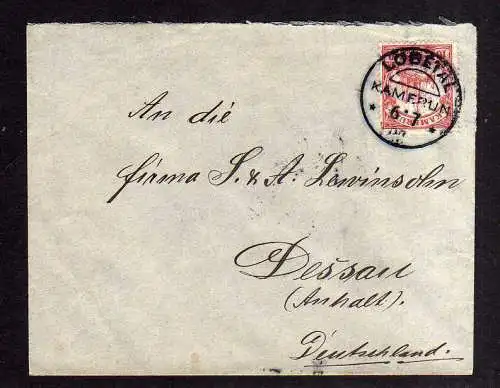 LOBETAL
KAMERUN
* 6.7 *
An die
Firma S. & A. Lewinsohn
Dessau
(Anhalt).
Deutschland.